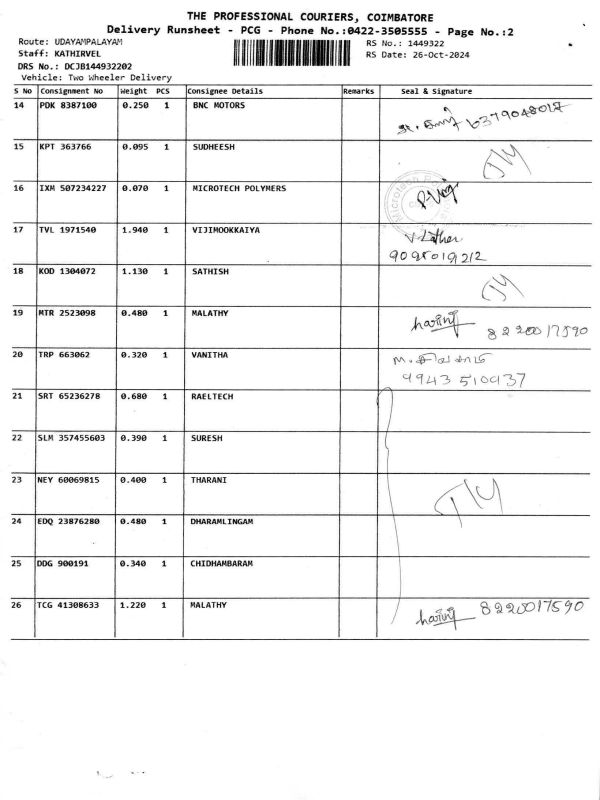 THE PROFESSIONAL COURIERS, COIMBATORE
Delivery Runsheet - PCG - Phone No.:0422-3505555 - Page No.:2
Route: UDAYAMPALAYAM RS No.: 1449322
Staff: KATHIRVEL RS Date: 26-Oct-2024
DRS No.: DCJB144932202
Vehicle: Two Wheeler Delivery
S No Consignment No Weight PCS Consignee Details Remarks Seal & Signature
14 PDK 8387100 0.250 1 BNC MOTORS
6379048017
15 KPT 363766 0.095 1 SUDHEESH
16 IXM 507234227 0.070 1 MICROTECH POLYMERS
Microtech
17 TVL 1971540 1.940 1 VIJIMOOKKAIYA
9095019212
18 KOD 1304072 1.130 1 SATHISH
19 MTR 2523098 0.480 1 MALATHY
8220017590
20 TRP 663062 0.320 1 VANITHA
9943510937
21 SRT 65236278 0.680 1 RAELTECH
22 SLM 357455603 0.390 1 SURESH
23 NEY 60069815 0.400 1 THARANI
24 EDQ 23876280 0.480 1 DHARAMLINGAM
25 DDG 900191 0.340 1 CHIDHAMBARAM
26 TCG 41308633 1.220 1 MALATHY
8220017590